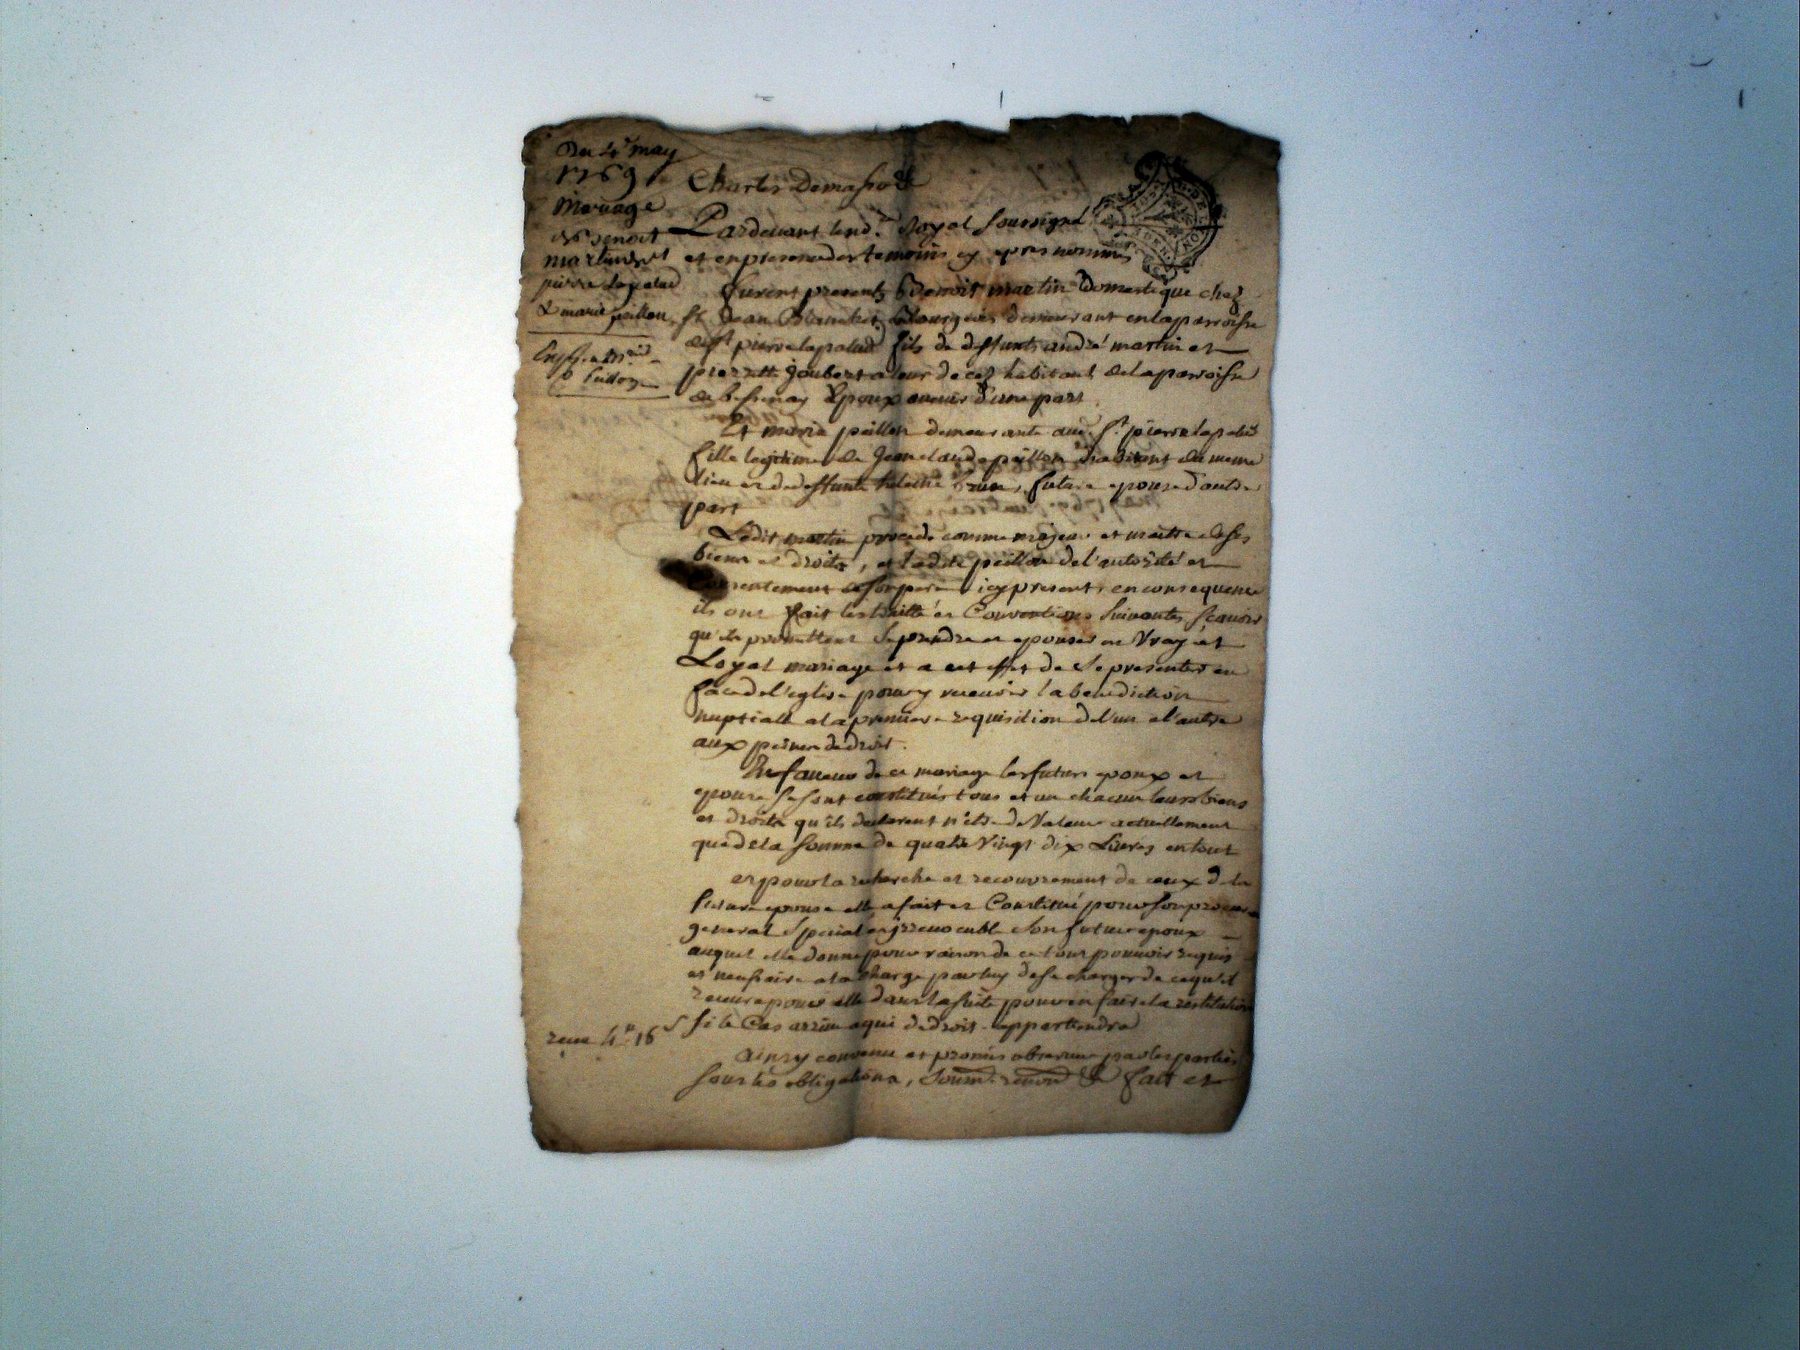 Du 4e may
1769
Mariage
de benoit
martin et
pierre lapalud
& marie peillon
Charles Demasso &c
Pardevant le nore. Royal soussigné
et en presence des temoins cy apres nommés
furent presents benoit martin Domestique chez
sr. Jean Blanchet bourgeois demeurant en la parroisse
de st pierre lapalud fils de deffunts andré martin et
pierrette Joubert a leur deceds habitants de la parroisse
de bessenay Epoux avenir d'une part
Et marie peillon demeurante aud. st. pierre lapalud
fille legitime de Jean claude peillon habitant du meme
lieu et de deffunte brun, future epouse d'autre
part
Ledit martin procede comme majeur et maitre de ses
biens et droits, et ladite peillon de l'autorité et
Consentement de son pere icy present, en consequence
ils ont fait les traitté et Conventions suivantes, sçavoir
qu'ils promettent se prendre et epouser en Vray et
Loyal mariage et a cet effet de se presenter en
face de l'eglise pour y recevoir la benediction
nuptialle a la premiere requisition de l'un a l'autre
aux peines de droit.
En faveur de ce mariage les futurs epoux et
epouse se sont constitués tous et un chacun leurs biens
et droits qu'ils declarent n'etre de Valeur actuellement
que de la somme de quatre Vingt dix Livres en tout
et pour la recherche et recouvrement de ceux de la
future epouse elle a fait et Constitué pour son procureur
general special et jrrevocable son futur epoux
auquel elle donne pour raison de ce tout pouvoir requis
et necessaire a la charge par luy de se charger de ce qu'il
recevra pour elle dans la suite pour en faire la restitution
si le Cas arrive a qui de droit appartiendra
receu 4 16 s
ainsy convenu et promis observer par les parties
sous les obligations, soum. renon. &c fait et